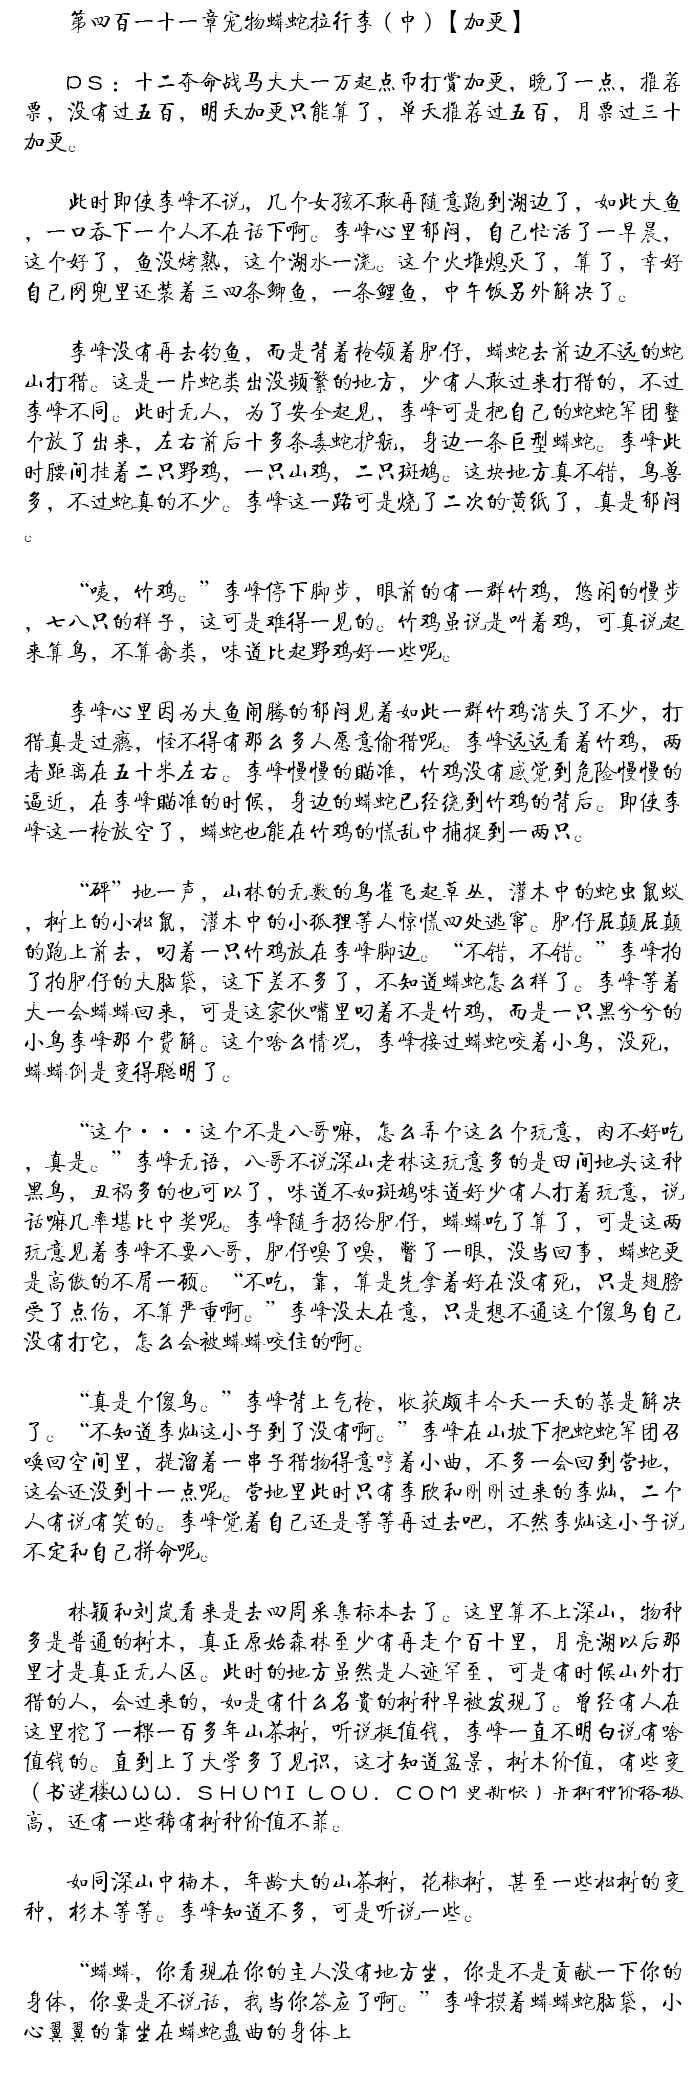 第四百一十一章宠物蟒蛇拉行李（中）【加更】
PS：十二夺命战马大大一万起点币打赏加更，晚了一点，推荐
票，没有过五百，明天加更只能算了，单天推荐过五百，月票过三十
加更。
此时即使李峰不说，几个女孩不敢再随意跑到湖边了，如此大鱼
，一口吞下一个人不在话下啊。李峰心里郁闷，自己忙活了一早晨，
这个好了，鱼没烤熟，这个湖水一浇。这个火堆熄灭了，算了，幸好
自己网兜里还装着三四条鲫鱼，一条鲤鱼，中午饭另外解决了。
李峰没有再去钓鱼，而是背着枪领着肥仔，蟒蛇去前边不远的蛇
山打猎。这是一片蛇类出没频繁的地方，少有人敢过来打猎的，不过
李峰不同。此时无人，为了安全起见，李峰可是把自己的蛇蛇军团整
个放了出来，左右前后十多条毒蛇护航，身边一条巨型蟒蛇。李峰此
时腰间挂着二只野鸡，一只山鸡，二只斑鸠。这块地方真不错，鸟兽
多，不过蛇真的不少。李峰这一路可是烧了二次的黄纸了，真是郁闷
。
“咦，竹鸡。”李峰停下脚步，眼前的有一群竹鸡，悠闲的慢步
，七八只的样子，这可是难得一见的。竹鸡虽说是叫着鸡，可真说起
来算鸟，不算禽类，味道比起野鸡好一些呢。
李峰心里因为大鱼闹腾的郁闷见着如此一群竹鸡消失了不少，打
猎真是过瘾，怪不得有那么多人愿意偷猎呢。李峰远远看着竹鸡，两
者距离在五十米左右。李峰慢慢的瞄准，竹鸡没有感觉到危险慢慢的
逼近，在李峰瞄准的时候，身边的蟒蛇已经绕到竹鸡的背后。即使李
峰这一枪放空了，蟒蛇也能在竹鸡的慌乱中捕捉到一两只。
“砰”地一声，山林的无数的鸟雀飞起草丛，灌木中的蛇虫鼠蚁
，树上的小松鼠，灌木中的小狐狸等人惊慌四处逃窜。肥仔屁颠屁颠
的跑上前去，叼着一只竹鸡放在李峰脚边。“不错，不错。”李峰拍
了拍肥仔的大脑袋，这下差不多了，不知道蟒蛇怎么样了。李峰等着
大一会蟒蟒回来，可是这家伙嘴里叼着不是竹鸡，而是一只黑兮兮的
小鸟李峰那个费解。这个啥么情况，李峰接过蟒蛇咬着小鸟，没死，
蟒蟒倒是变得聪明了。
“这个···这个不是八哥嘛，怎么弄个这么个玩意，肉不好吃
，真是。”李峰无语，八哥不说深山老林这玩意多的是田间地头这种
黑鸟，丑祸多的也可以了，味道不如斑鸠味道好少有人打着玩意，说
话嘛几率堪比中奖呢。李峰随手扔给肥仔，蟒蟒吃了算了，可是这两
玩意见着李峰不要八哥，肥仔嗅了嗅，瞥了一眼，没当回事，蟒蛇更
是高傲的不屑一顾。“不吃，靠，算是先拿着好在没有死，只是翅膀
受了点伤，不算严重啊。”李峰没太在意，只是想不通这个傻鸟自己
没有打它，怎么会被蟒蟒咬住的啊。
“真是个傻鸟。”李峰背上气枪，收获颇丰今天一天的菜是解决
了。“不知道李灿这小子到了没有啊。”李峰在山坡下把蛇蛇军团召
唤回空间里，提溜着一串子猎物得意哼着小曲，不多一会回到营地，
这会还没到十一点呢。营地里此时只有李欣和刚刚过来的李灿，二个
人有说有笑的。李峰觉着自己还是等等再过去吧，不然李灿这小子说
不定和自己拼命呢。
林颖和刘岚看来是去四周采集标本去了。这里算不上深山，物种
多是普通的树木，真正原始森林至少有再走个百十里，月亮湖以后那
里才是真正无人区。此时的地方虽然是人迹罕至，可是有时候山外打
猎的人，会过来的，如是有什么名贵的树种早被发现了。曾经有人在
这里挖了一棵一百多年山茶树，听说挺值钱，李峰一直不明白说有啥
值钱的。直到上了大学多了见识，这才知道盆景，树木价值，有些变
（书迷楼WWW.SHUMILOU.COM更新快）异树种价格极
高，还有一些稀有树种价值不菲。
如同深山中楠木，年龄大的山茶树，花椒树，甚至一些松树的变
种，杉木等等。李峰知道不多，可是听说一些。
“蟒蟒，你看现在你的主人没有地方坐，你是不是贡献一下你的
身体，你要是不说话，我当你答应了啊。”李峰摸着蟒蟒蛇脑袋，小
心翼翼的靠坐在蟒蛇盘曲的身体上